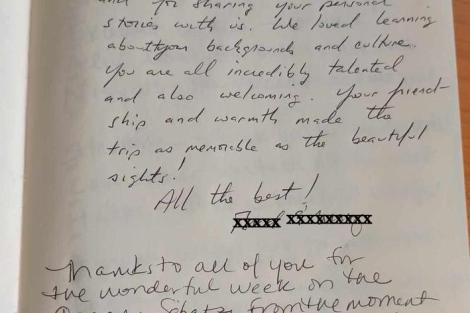 and for sharing your personal
stories with us. We loved learning
about your backgrounds and culture.
You are all incredibly talented
and also welcoming. Your friend-
ship and warmth made the
trip as memorable as the beautiful
sights!
All the best!
xxxxx xxxxxxxxx
Thanks to all of you for
the wonderful week on the
from the moment